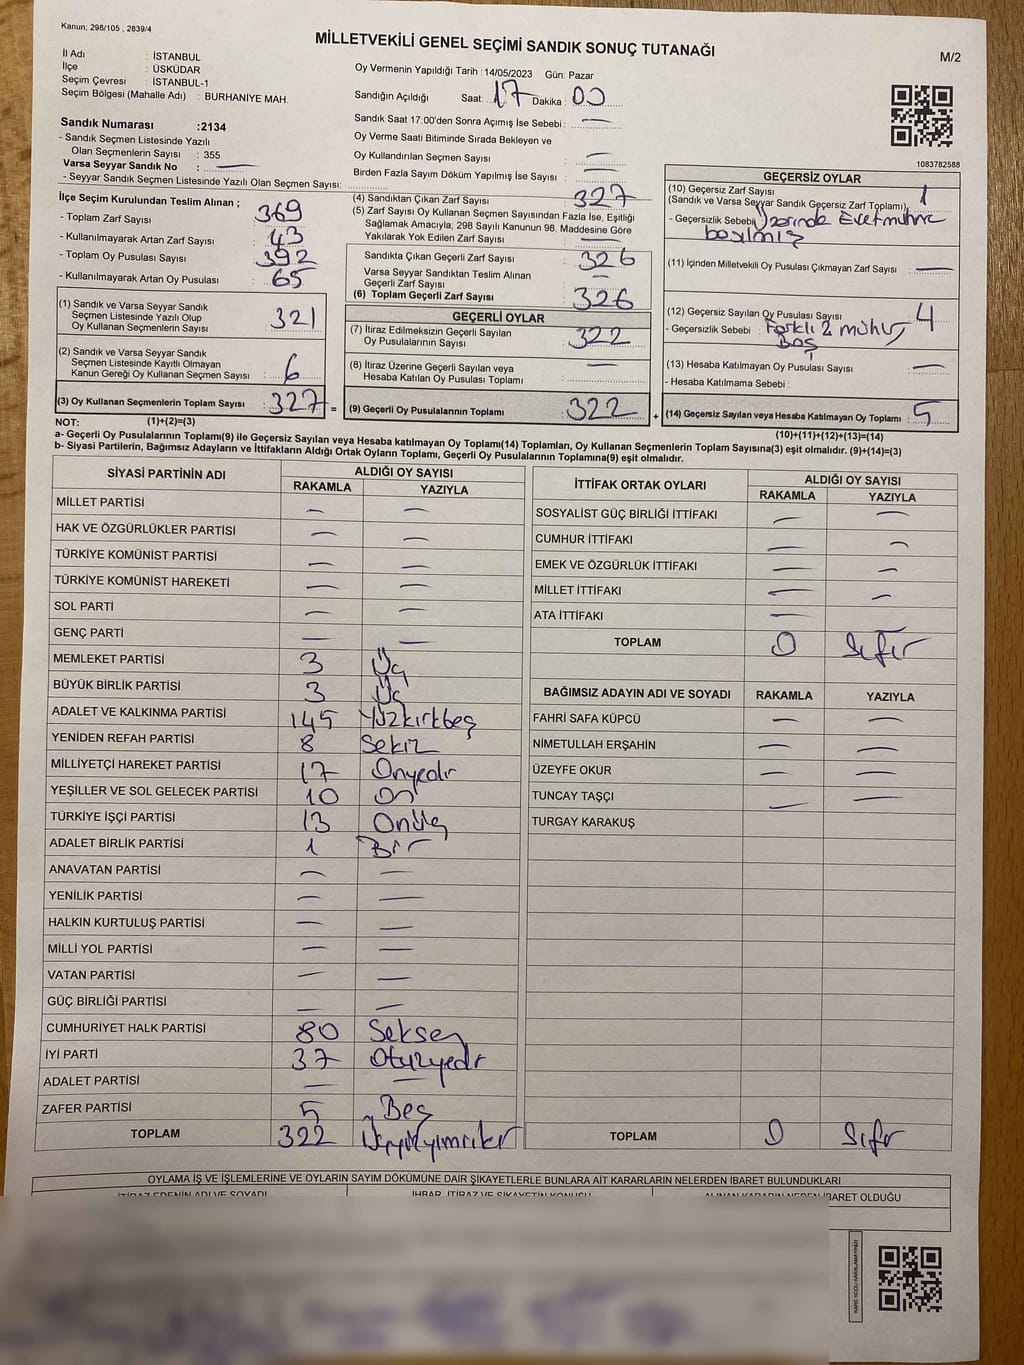 Kanun; 298/105 , 2839/4
MİLLETVEKİLİ GENEL SEÇİMİ SANDIK SONUÇ TUTANAĞI
M/2
İl Adı : İSTANBUL
İlçe : ÜSKÜDAR
Seçim Çevresi : İSTANBUL-1
Seçim Bölgesi (Mahalle Adı) : BURHANİYE MAH.
Oy Vermenin Yapıldığı Tarih : 14/05/2023 Gün: Pazar
Sandığın Açıldığı Saat: 17 Dakika : 00
Sandık Saat 17:00'den Sonra Açımış İse Sebebi : —
Oy Verme Saati Bitiminde Sırada Bekleyen ve
Oy Kullandırılan Seçmen Sayısı : —
Birden Fazla Sayım Döküm Yapılmış İse Sayısı : —
Sandık Numarası :2134
- Sandık Seçmen Listesinde Yazılı
Olan Seçmenlerin Sayısı : 355
Varsa Seyyar Sandık No : —
- Seyyar Sandık Seçmen Listesinde Yazılı Olan Seçmen Sayısı:
1083782588
İlçe Seçim Kurulundan Teslim Alınan ;
- Toplam Zarf Sayısı : 369
- Kullanılmayarak Artan Zarf Sayısı : 43
- Toplam Oy Pusulası Sayısı : 392
- Kullanılmayarak Artan Oy Pusulası : 65
(1) Sandık ve Varsa Seyyar Sandık
Seçmen Listesinde Yazılı Olup
Oy Kullanan Seçmenlerin Sayısı : 321
(2) Sandık ve Varsa Seyyar Sandık
Seçmen Listesinde Kayıtlı Olmayan
Kanun Gereği Oy Kullanan Seçmen Sayısı : 6
(3) Oy Kullanan Seçmenlerin Toplam Sayısı : 327 =
(1)+(2)=(3)
(4) Sandıktan Çıkan Zarf Sayısı : 327
(5) Zarf Sayısı Oy Kullanan Seçmen Sayısından Fazla İse, Eşitliği
Sağlamak Amacıyla, 298 Sayılı Kanunun 98. Maddesine Göre
Yakılarak Yok Edilen Zarf Sayısı : —
Sandıkta Çıkan Geçerli Zarf Sayısı : 326
Varsa Seyyar Sandıktan Teslim Alınan
Geçerli Zarf Sayısı : —
(6) Toplam Geçerli Zarf Sayısı : 326
GEÇERLİ OYLAR
(7) İtiraz Edilmeksizin Geçerli Sayılan
Oy Pusulalarının Sayısı : 322
(8) İtiraz Üzerine Geçerli Sayılan veya
Hesaba Katılan Oy Pusulası Toplamı : —
(9) Geçerli Oy Pusulalarının Toplamı : 322 +
GEÇERSİZ OYLAR
(10) Geçersiz Zarf Sayısı
(Sandık ve Varsa Seyyar Sandık Geçersiz Zarf Toplamı) : 1
- Geçersizlik Sebebi : Üzerinde Evet mührü
basılmış
(11) İçinden Milletvekili Oy Pusulası Çıkmayan Zarf Sayısı : —
(12) Geçersiz Sayılan Oy Pusulası Sayısı : 4
- Geçersizlik Sebebi : Farklı 2 mühür
Boş
(13) Hesaba Katılmayan Oy Pusulası Sayısı : —
- Hesaba Katılmama Sebebi :
(14) Geçersiz Sayılan veya Hesaba Katılmayan Oy Toplamı : 5
(10)+(11)+(12)+(13)=(14)
NOT:
a- Geçerli Oy Pusulalarının Toplamı(9) ile Geçersiz Sayılan veya Hesaba katılmayan Oy Toplamı(14) Toplamları, Oy Kullanan Seçmenlerin Toplam Sayısına(3) eşit olmalıdır. (9)+(14)=(3)
b- Siyasi Partilerin, Bağımsız Adayların ve İttifakların Aldığı Ortak Oyların Toplamı, Geçerli Oy Pusulalarının Toplamına(9) eşit olmalıdır.
SİYASİ PARTİNİN ADI ALDIĞI OY SAYISI
RAKAMLA YAZIYLA
MİLLET PARTİSİ — —
HAK VE ÖZGÜRLÜKLER PARTİSİ — —
TÜRKİYE KOMÜNİST PARTİSİ — —
TÜRKİYE KOMÜNİST HAREKETİ — —
SOL PARTİ — —
GENÇ PARTİ — —
MEMLEKET PARTİSİ 3 Üç
BÜYÜK BİRLİK PARTİSİ 3 Üç
ADALET VE KALKINMA PARTİSİ 145 Yüzkırkbeş
YENİDEN REFAH PARTİSİ 8 Sekiz
MİLLİYETÇİ HAREKET PARTİSİ 17 Onyedi
YEŞİLLER VE SOL GELECEK PARTİSİ 10 On
TÜRKİYE İŞÇİ PARTİSİ 13 Onüç
ADALET BİRLİK PARTİSİ 1 Bir
ANAVATAN PARTİSİ — —
YENİLİK PARTİSİ — —
HALKIN KURTULUŞ PARTİSİ — —
MİLLİ YOL PARTİSİ — —
VATAN PARTİSİ — —
GÜÇ BİRLİĞİ PARTİSİ — —
CUMHURİYET HALK PARTİSİ 80 Seksen
İYİ PARTİ 37 Otuzyedi
ADALET PARTİSİ — —
ZAFER PARTİSİ 5 Beş
TOPLAM 322 Üçyüzyirmiiki
İTTİFAK ORTAK OYLARI ALDIĞI OY SAYISI
RAKAMLA YAZIYLA
SOSYALİST GÜÇ BİRLİĞİ İTTİFAKI — —
CUMHUR İTTİFAKI — —
EMEK VE ÖZGÜRLÜK İTTİFAKI — —
MİLLET İTTİFAKI — —
ATA İTTİFAKI — —
TOPLAM 0 Sıfır
BAĞIMSIZ ADAYIN ADI VE SOYADI RAKAMLA YAZIYLA
FAHRİ SAFA KÜPCÜ — —
NİMETULLAH ERŞAHİN — —
ÜZEYFE OKUR — —
TUNCAY TAŞÇI — —
TURGAY KARAKUŞ
TOPLAM 0 Sıfır
OYLAMA İŞ VE İŞLEMLERİNE VE OYLARIN SAYIM DÖKÜMÜNE DAİR ŞİKAYETLERLE BUNLARA AİT KARARLARIN NELERDEN İBARET BULUNDUKLARI
İTİRAZ EDENİN ADI VE SOYADI İHBAR, İTİRAZ VE ŞİKAYETİN KONUSU ALINAN KARARIN NEDEN İBARET OLDUĞU